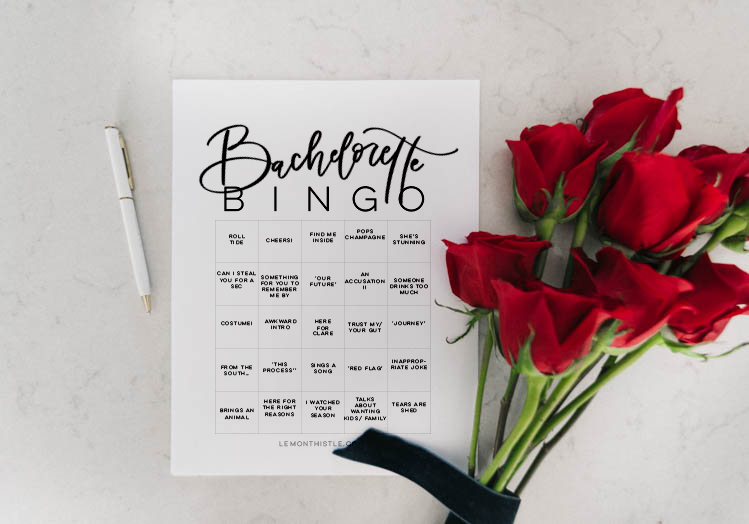 Bachelorette
BINGO
ROLL
TIDE
CHEERS!
FIND ME
INSIDE
POPS
CHAMPAGNE
SHE'S
STUNNING
CAN I STEAL
YOU FOR A
SEC
SOMETHING
FOR YOU TO
REMEMBER
ME BY
'OUR
FUTURE'
AN
ACCUSATION
!!
SOMEONE
DRINKS TOO
MUCH
COSTUME!
AWKWARD
INTRO
HERE
FOR
CLARE
TRUST MY/
YOUR GUT
'JOURNEY'
FROM THE
SOUTH...
'THIS
PROCESS''
SINGS A
SONG
'RED FLAG'
INAPPROP-
RIATE JOKE
BRINGS AN
ANIMAL
HERE FOR
THE RIGHT
REASONS
I WATCHED
YOUR
SEASON
TALKS
ABOUT
WANTING
KIDS/ FAMILY
TEARS ARE
SHED
LEMONTHISTLE.CO